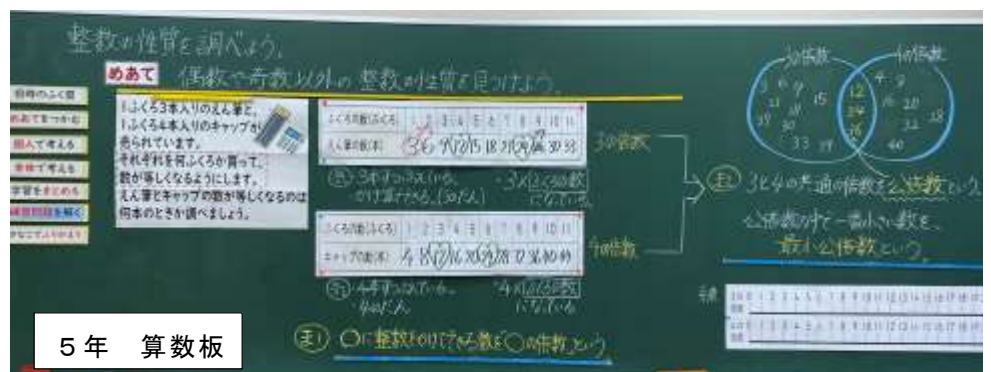 整数の性質を調べよう。
めあて 偶数や奇数以外の整数の性質を見つけよう。
前時のふく習
めあてをつかむ
個人で考える
全体で考える
学習をまとめる
練習問題を解く
1ふくろ3本入りのえん筆と、
1ふくろ4本入りのキャップが
売られています。
それぞれを何ふくろか買って、
数が等しくなるようにします。
えん筆とキャップの数が等しくなるのは
何本のときか調べましょう。
ふくろの数(ふくろ) 1 2 3 4 5 6 7 8 9 10 11
えん筆の数(本) 3 6 9 12 15 18 21 24 27 30 33
3の倍数
3本ずつふえている。
かけ算でできる。(3のだん)
3×ふくろの数
になっている。
ふくろの数(ふくろ) 1 2 3 4 5 6 7 8 9 10 11
キャップの数(本) 4 8 12 16 20 24 28 32 36 40 44
4の倍数
4本ずつふえている。
4のだん
4×ふくろの数
になっている
○に整数をかけてできる数を○の倍数という
3の倍数 4の倍数
12
24
36
15
30
33
20
32
28
40
3と4の共通の倍数を公倍数という。
公倍数の中で一番小さい数を、
最小公倍数という。
5年 算数板